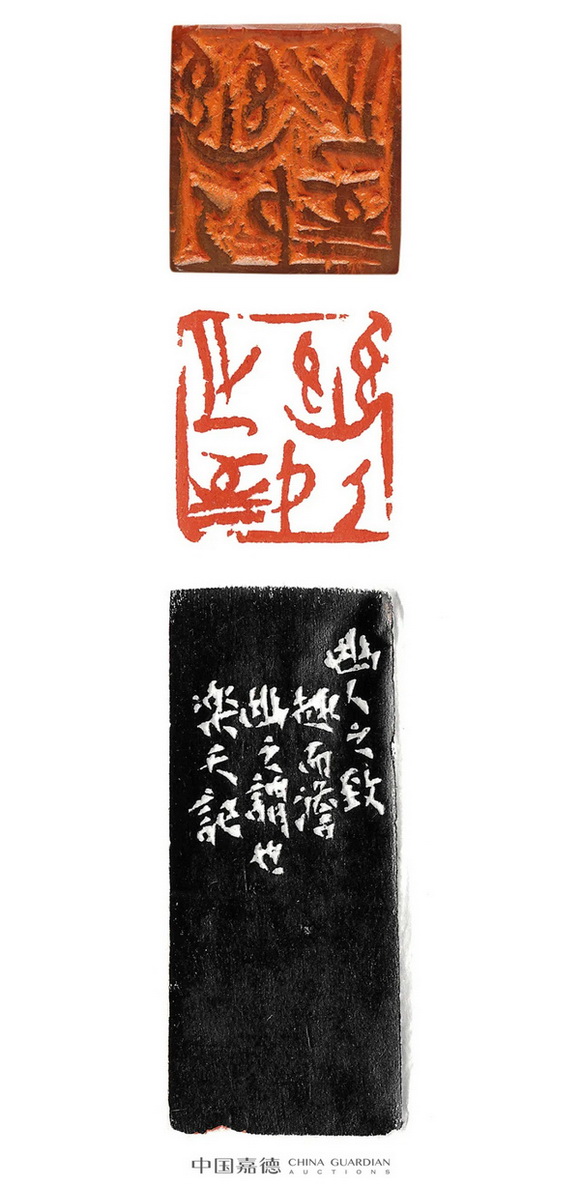 幽人
幽人之致
而澹
幽之謂也
樂天記
中国嘉德 CHINA GUARDIAN
AUCTIONS